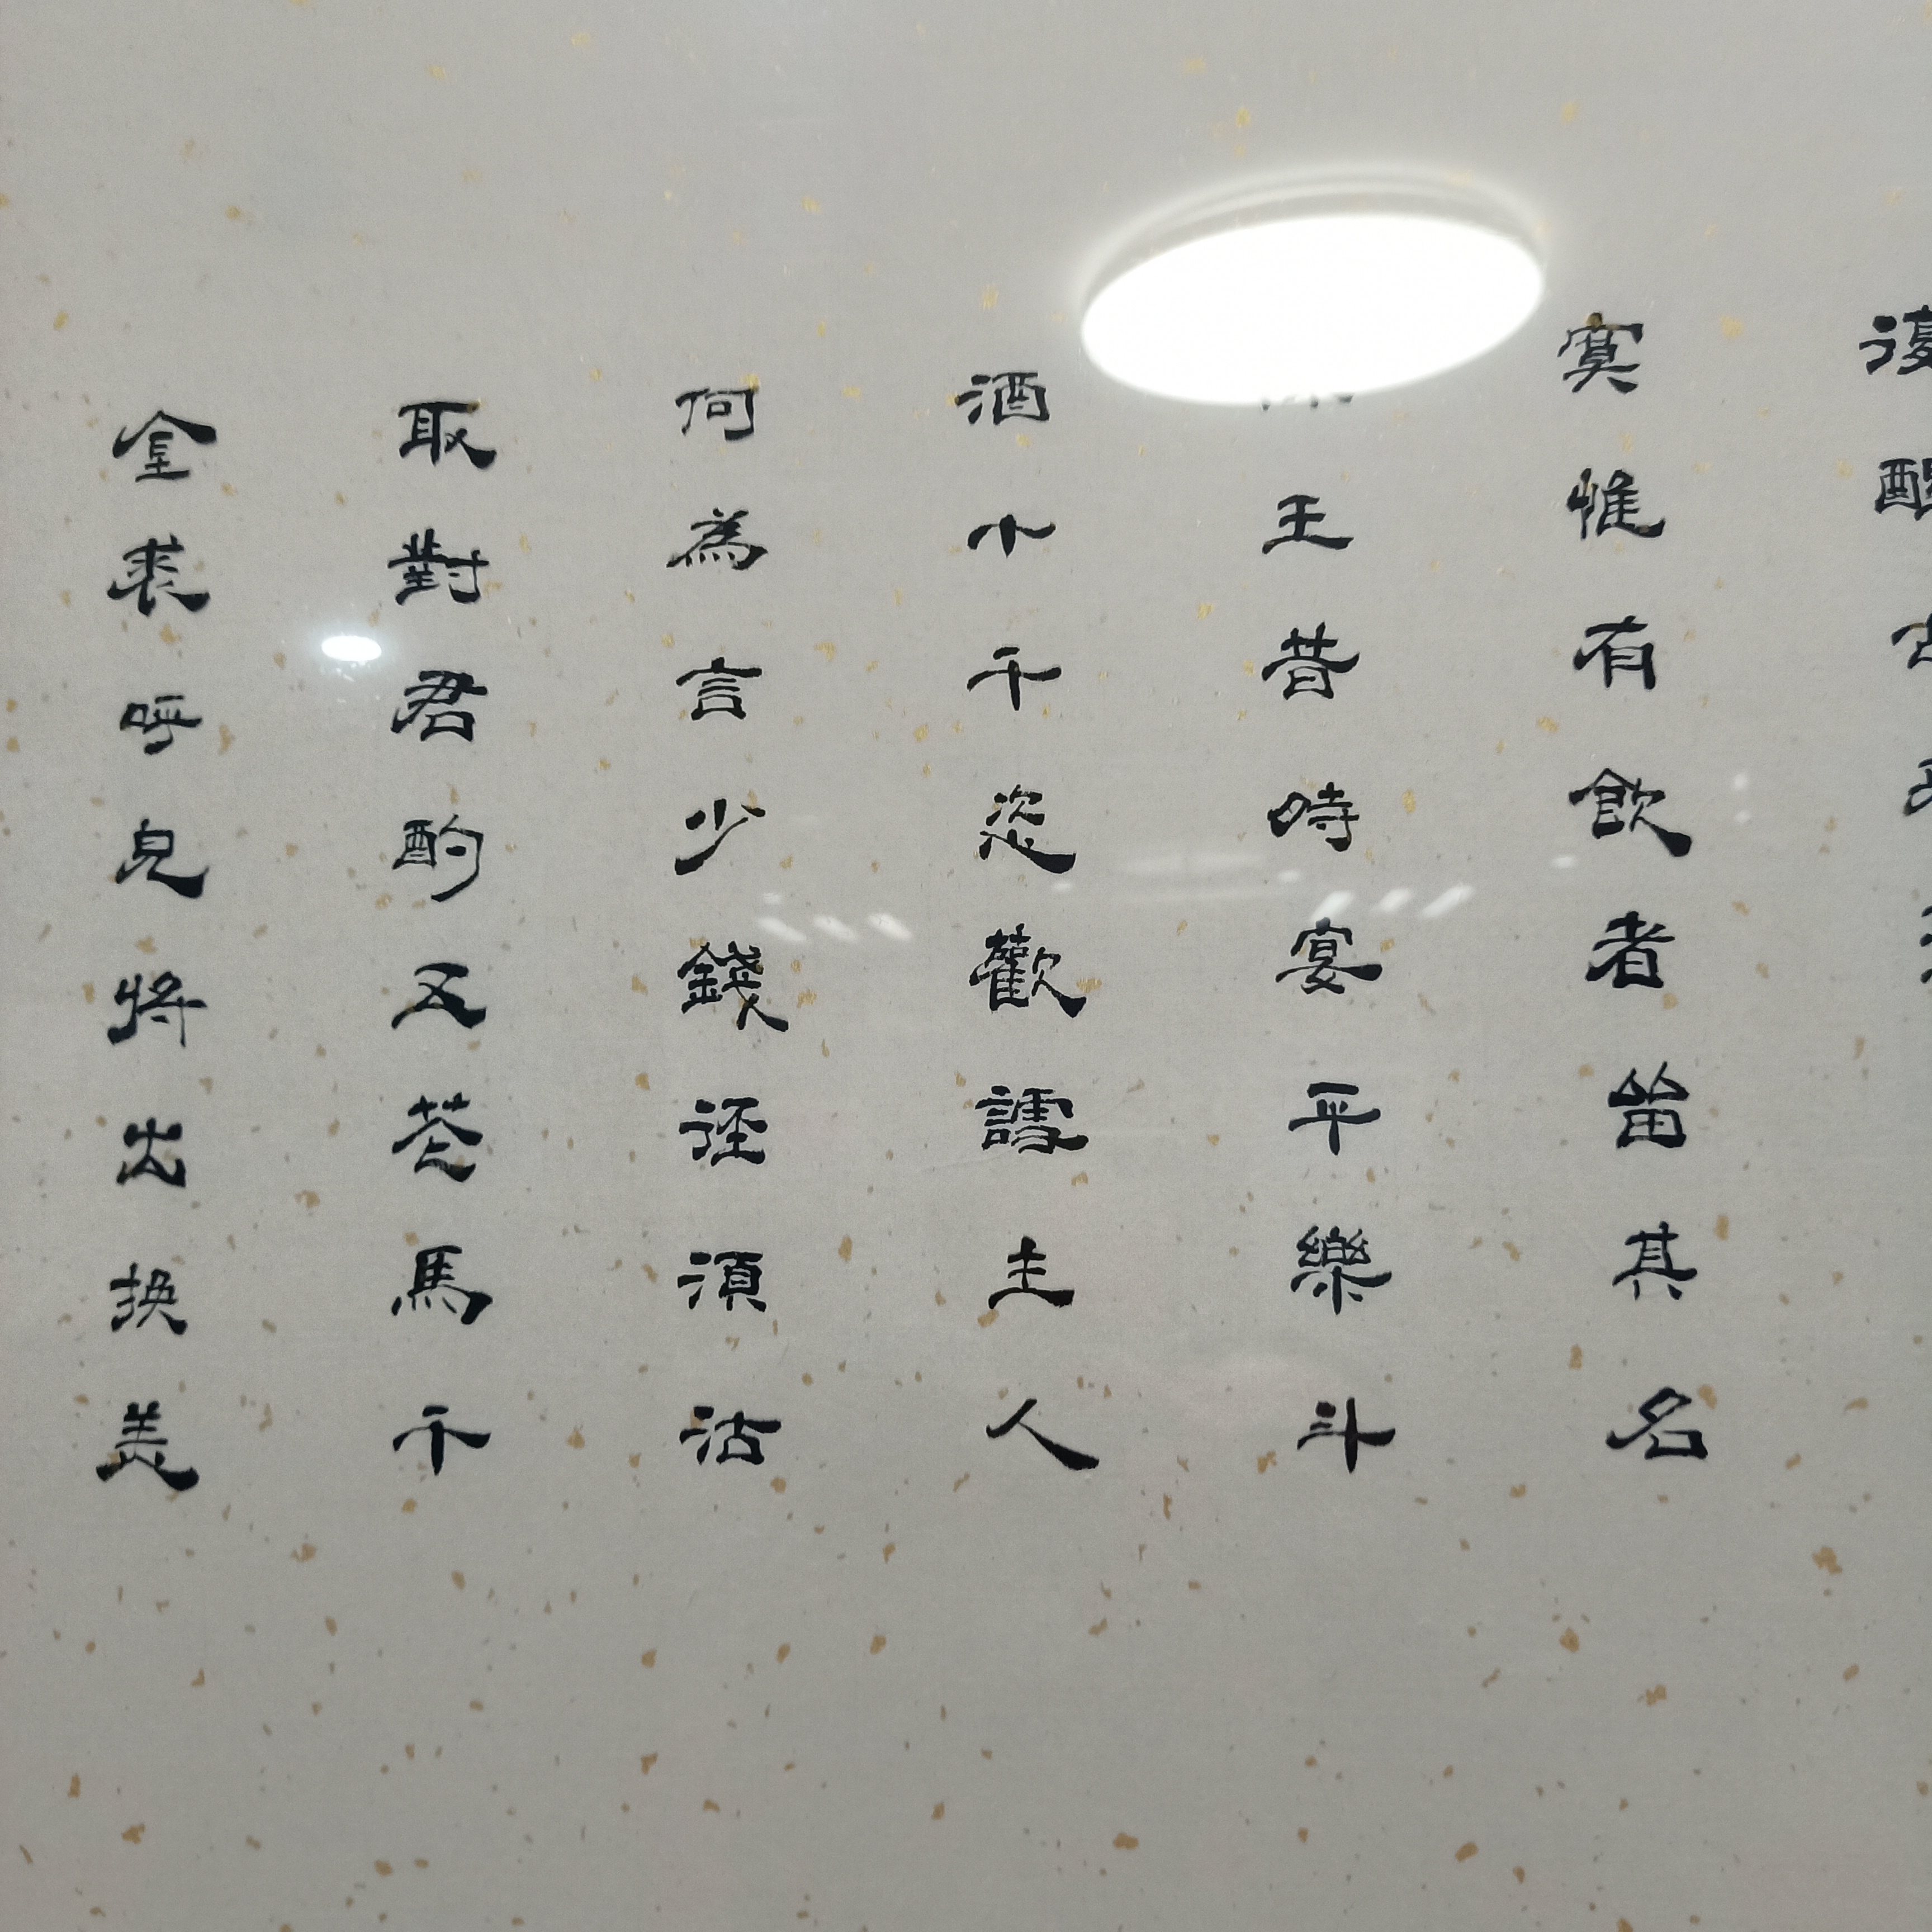 復醒
寞惟有飲者留其名
王昔時宴平樂斗
酒十千恣歡謔主人
何為言少錢徑須沽
取對君酌五花馬千
金裘呼兒將出換美